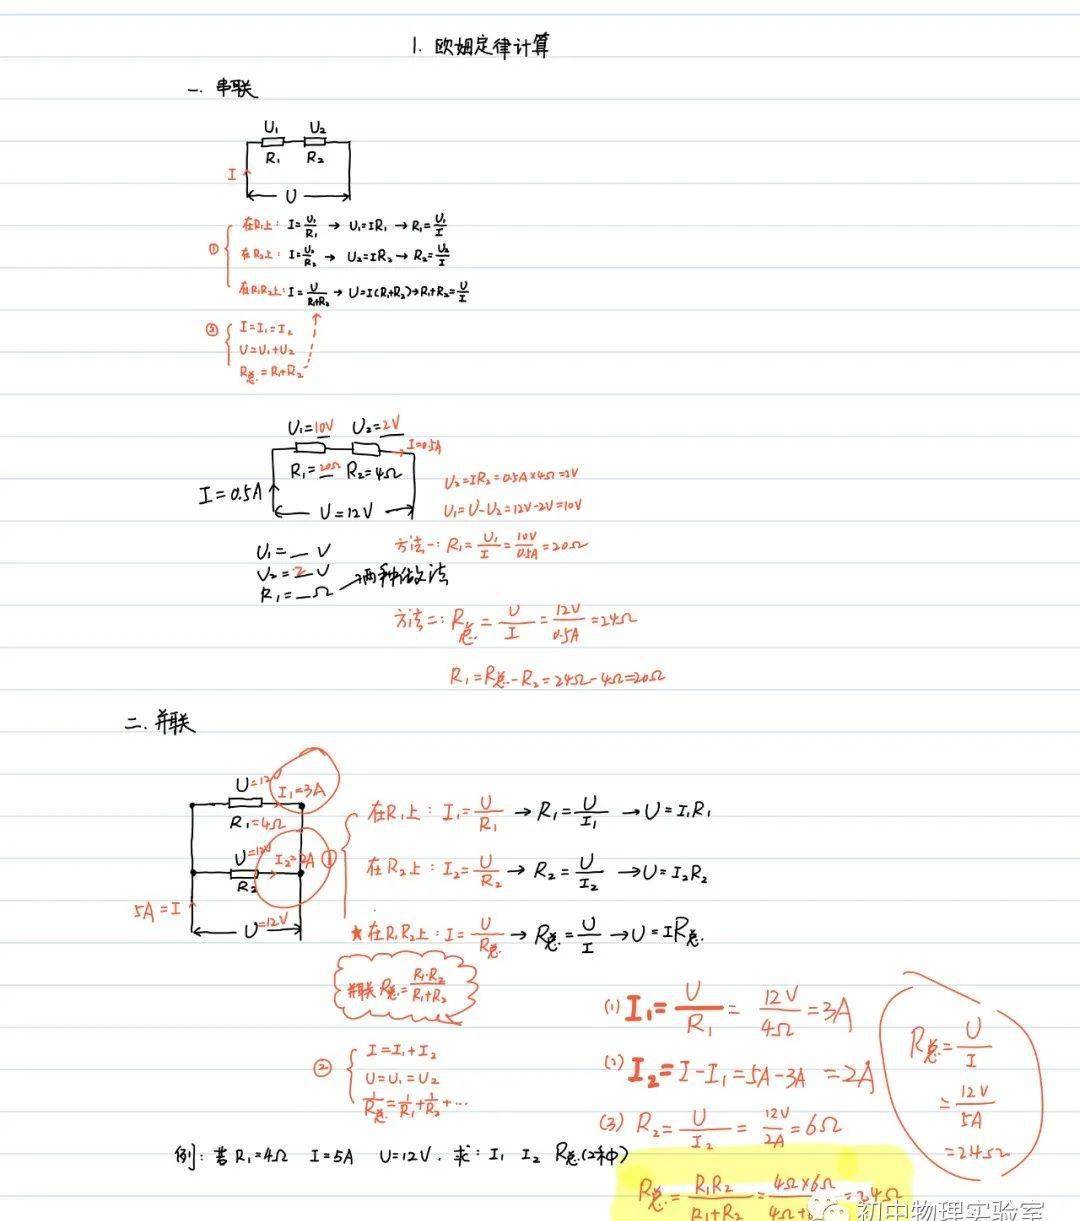 1. 欧姆定律计算
一. 串联
U₁ U₂
R₁ R₂
I
U
① 在R₁上: I=U₁/R₁ → U₁=IR₁ → R₁=U₁/I
在R₂上: I=U₂/R₂ → U₂=IR₂ → R₂=U₂/I
在R₁R₂上: I=U/(R₁+R₂) → U=I(R₁+R₂) → R₁+R₂=U/I
② I=I₁=I₂
U=U₁+U₂
R总.=R₁+R₂
U₁=10V U₂=2V
I=0.5A
R₁=20Ω R₂=4Ω
I=0.5A
U=12V
U₂=IR₂=0.5A×4Ω=2V
U₁=U-U₂=12V-2V=10V
U₁=_V
U₂=2V
R₁=_Ω →两种做法
方法一: R₁=U₁/I=10V/0.5A=20Ω
方法二: R总=U/I=12V/0.5A=24Ω
R₁=R总-R₂=24Ω-4Ω=20Ω
二. 并联
U=12V I₁=3A
R₁=4Ω
U=12V I₂=2A
R₂
5A=I
U=12V
① 在R₁上: I₁=U/R₁ → R₁=U/I₁ → U=I₁R₁
在R₂上: I₂=U/R₂ → R₂=U/I₂ → U=I₂R₂
★在R₁R₂上: I=U/R总. → R总=U/I → U=IR总.
并联R总=R₁·R₂/(R₁+R₂)
② I=I₁+I₂
U=U₁=U₂
1/R总.=1/R₁+1/R₂+…
例: 若R₁=4Ω I=5A U=12V. 求: I₁ I₂ R总.(2种)
(1) I₁=U/R₁=12V/4Ω=3A
(2) I₂=I-I₁=5A-3A=2A
(3) R₂=U/I₂=12V/2A=6Ω
R总=R₁R₂/(R₁+R₂)=4Ω×6Ω/(4Ω+ =2.4Ω
R总=U/I
=12V/5A
=2.4Ω
初中物理实验室